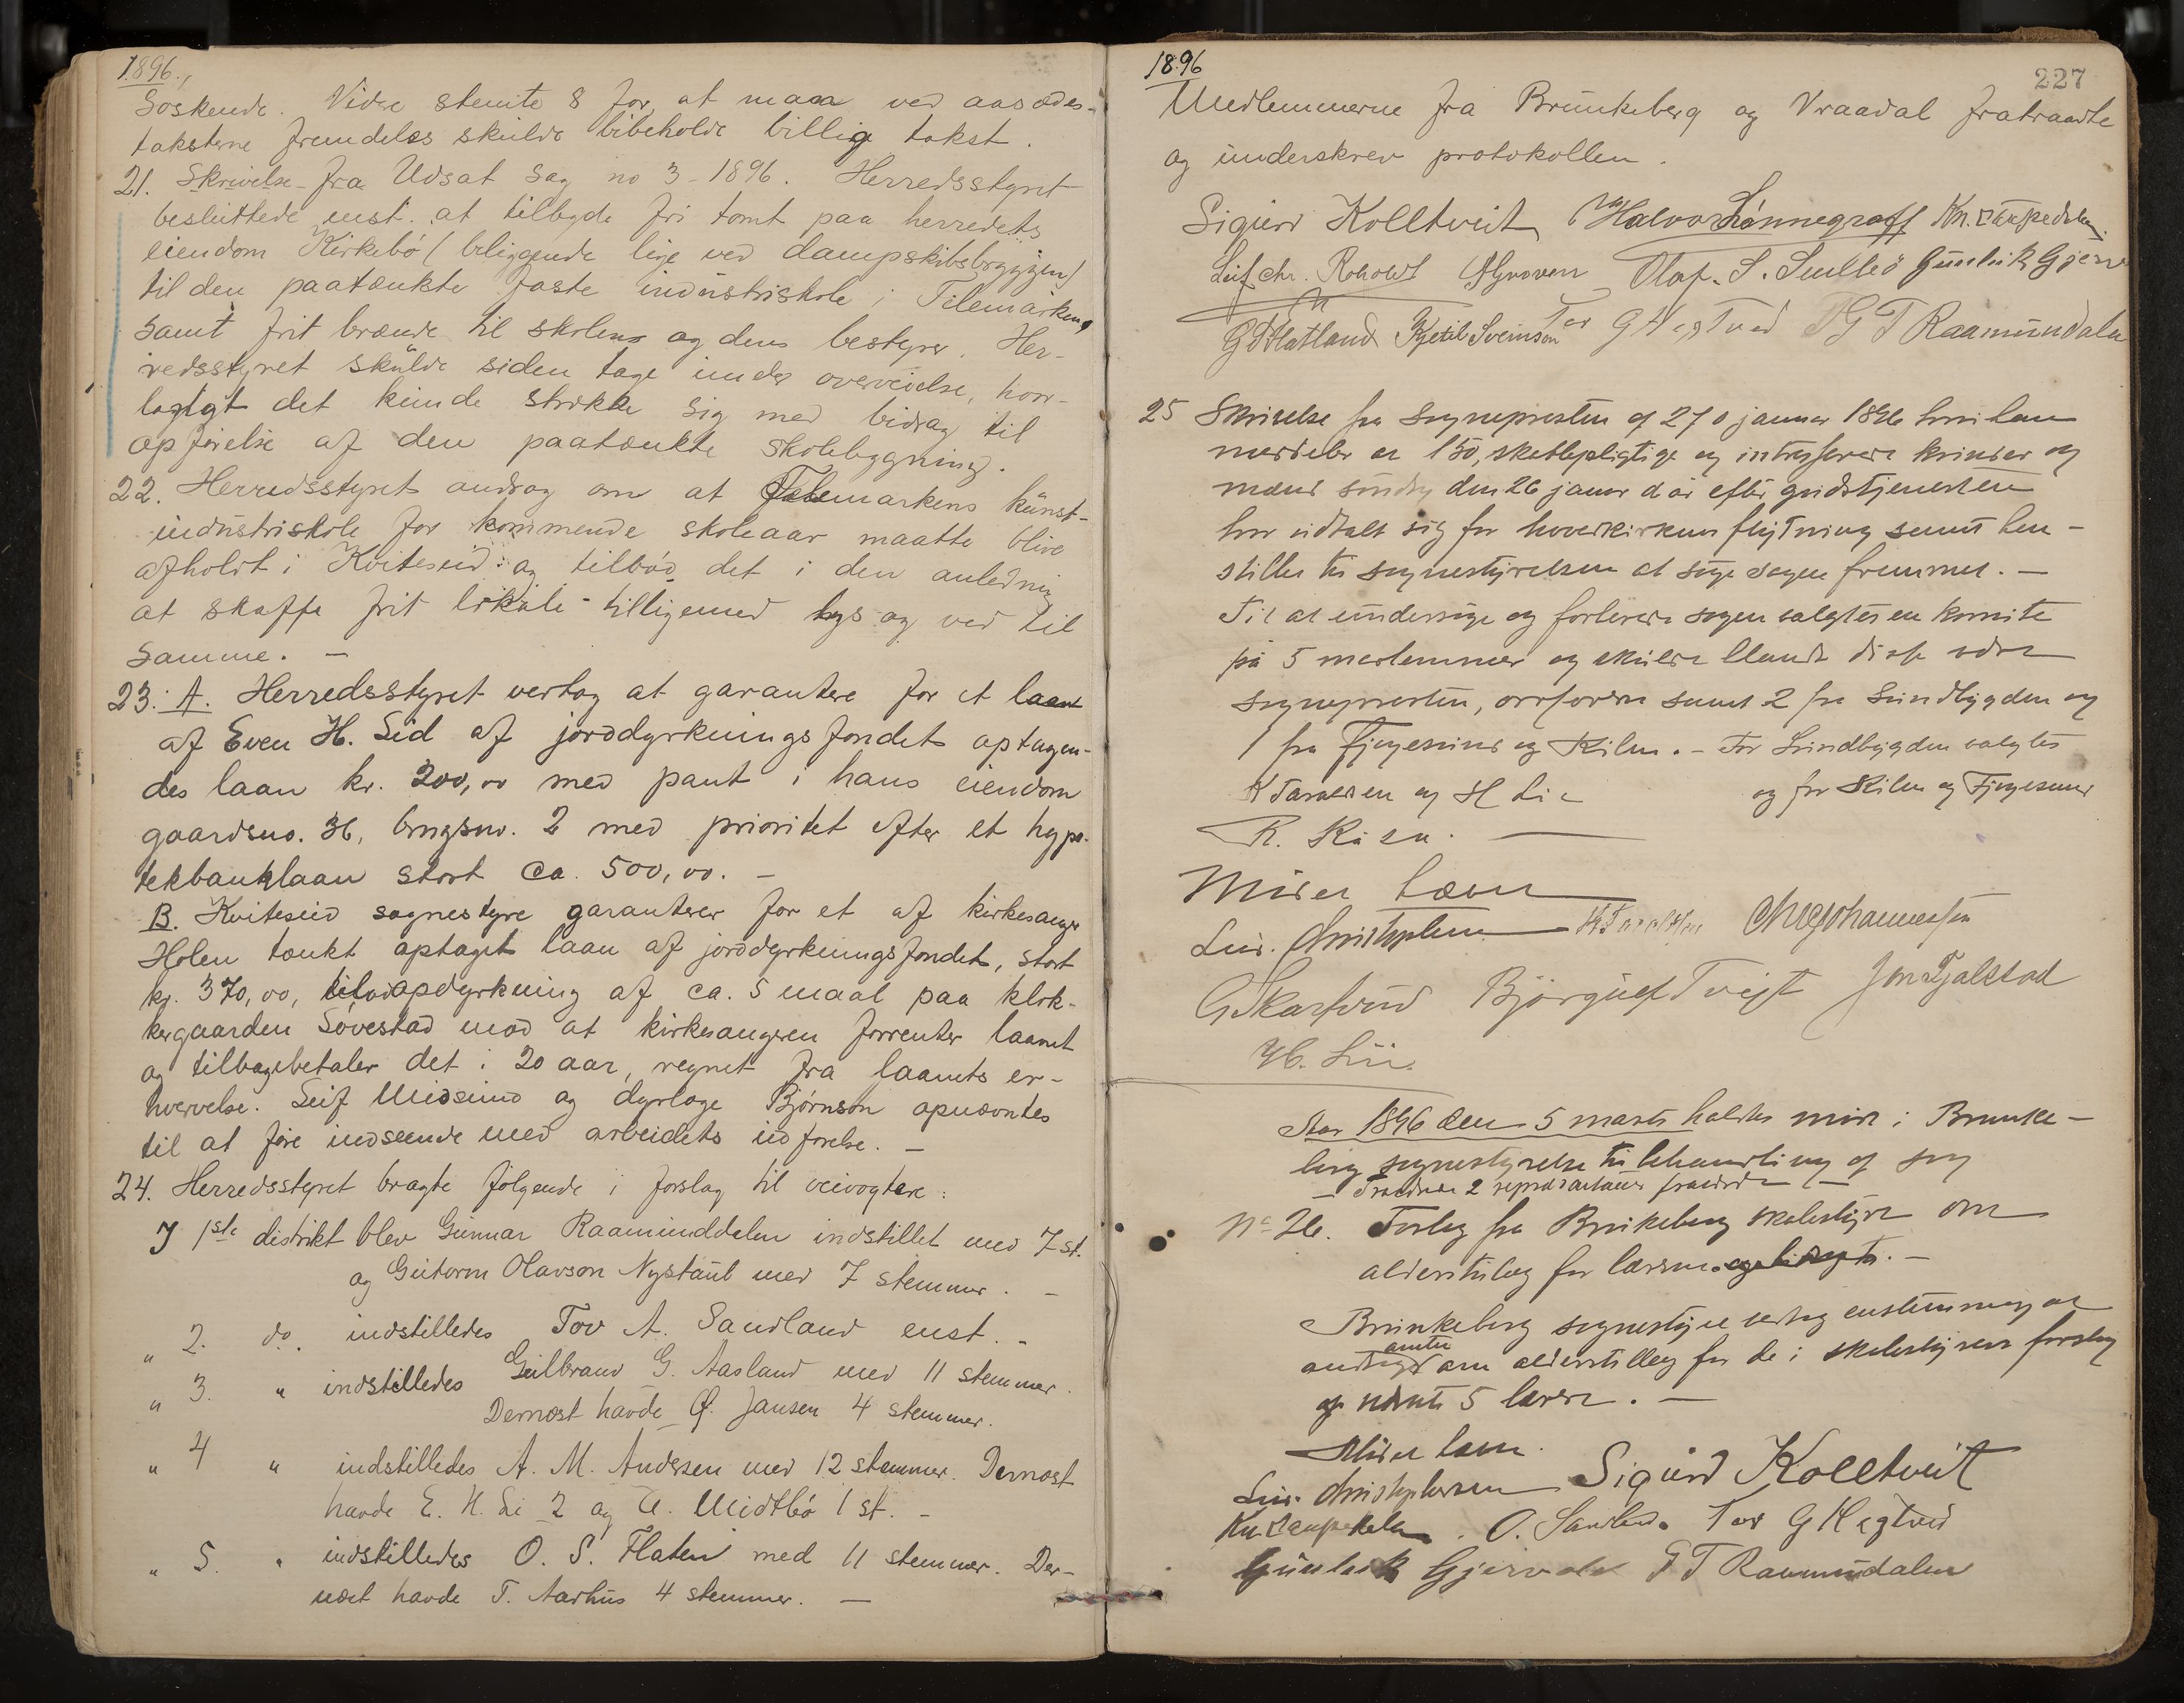 1896.,
Søskende. Vidre stemte 8 for, at man ved aasædes-
taksterne fremdeles skulde bibeholde billig takst.
21. Skrivelse fra Udsat Sag no 3 - 1896. Herredsstyret
besluttede enst. at tilbyde fri tomt paa herredets
eiendom Kirkebø (beliggende lige ved dampskibsbryggen)
til den paatænkte faste industriskole i Telemarken,
samt frit brænde til skolens og dens bestyrer. Her-
redsstyret skulde siden tage under overveielse, hvor-
langt det kunde strække sig med bidrag til
opførelse af den paatænkte skolebygning.
22. Herredsstyret androg om at Telemarkens kunst-
industriskole for kommende skoleaar maatte blive
afholdt i Kviteseid og tilbød det i den anledning
at skaffe frit lokale tilligemed lys og ved til
samme. —
23. A. Herredsstyret vertog at garantere for et laant
af Even H. Lid af jorddyrkningsfondet optagen-
des laan kr. 200,00 med pant i hans eiendom
gaardsno. 36, brugsno. 2 med prioritet efter et hypo-
tekbanklaan stort ca. 500,00. —
B. Kviteseid sognestyre garanterer for et af kirkesanger
Holen tænkt optaget laan af jorddyrkningsfondet, stort
kr. 370,00, til opdyrkning af ca. 5 maal paa klok-
kergaarden Søvestad mod at kirkesangeren forrenter laanet
og tilbagebetaler det i 20 aar, regnet fra laanets er-
hvervelse. Leif Midsund og dyrlæge Bjørnson opnævntes
til at føre indseende med arbeidets udførelse. —
24. Herredsstyret bragte følgende i forslag til veivogtere:
I 1ste distrikt blev Gunnar Raamunddalen indstillet med 7 st.
og Gutorm Olavson Nystaul med 7 stemmer. —
„ 2. do. indstilledes Tov A. Sandland enst. -
„ 3. „ indstilledes Gulbrand G. Aasland med 11 stemmer.
Dernæst havde Ø. Jansen 4 stemmer.
„ 4 „ indstilledes A. M. Andersen med 12 stemmer. Dernæst
havde E. H. Li 2 og A. Midtbø 1 st. -
„ 5. „ indstilledes O. S. Flaten med 11 stemmer. Der-
næst havde T. Aarhus 4 stemmer. —
1896
227
Medlemmerne fra Brunkeberg og Vraadal fratraadte
og underskrev protokollen.
Sigurd Kolltveit Halvor Lønnegraff
Olaf. S. Gunleik Gjerv
G Flatland Kjetil Sveinson Tor G Hegtved G T Raamundalen
25 Skrivelse fra Sognepresten af 27 januar 1896 hvori han
meddeler at 150, skattepligtige og intresserede kvinder og
mænd søndag den 26 januar d år efter gudstjenesten
har udtalt sig for hovedkirkens flytning samt hen-
stiller til sognestyrelsen at søge sagen fremmet. —
Til at undersøge og forberede sagen valgtes en komite
på 5 medlemmer og skulde blandt disse være
sognepresten, ordføren samt 2 fra Sundbygden og
1 fra Fjågesund og Kilen. - For Sundbygden valgtes
K Taraldsen og H Lie og for Kilen og Fjågesund
R. Kåsa. —
Mider Lævn
Lur. Christophersen K Taraldsen Johannessen
G Skarfund Bjørgulf Tveit Jon Fjalestad
H. Lii.
Aar 1896 den 5 marts holdtes møde i Brunke-
berg sognestyrelse til behandling af sag
— Fraværende 2 repræsentanter —
No 26. Forslag fra Brunkeberg skolestyre om
alderstillæg for lærerne.
Brunkeberg sognestyre vedtog enstemmig at
andrage amtet om alderstillæg for de i skolestyrets forslag
nævnte 5 lærere. —
Mider Lævn.
Lur. Christophersen Sigurd Kolltveit
O. Sandland. Tor G Hegtved
Gunleik Gjervale G T Raamundalen